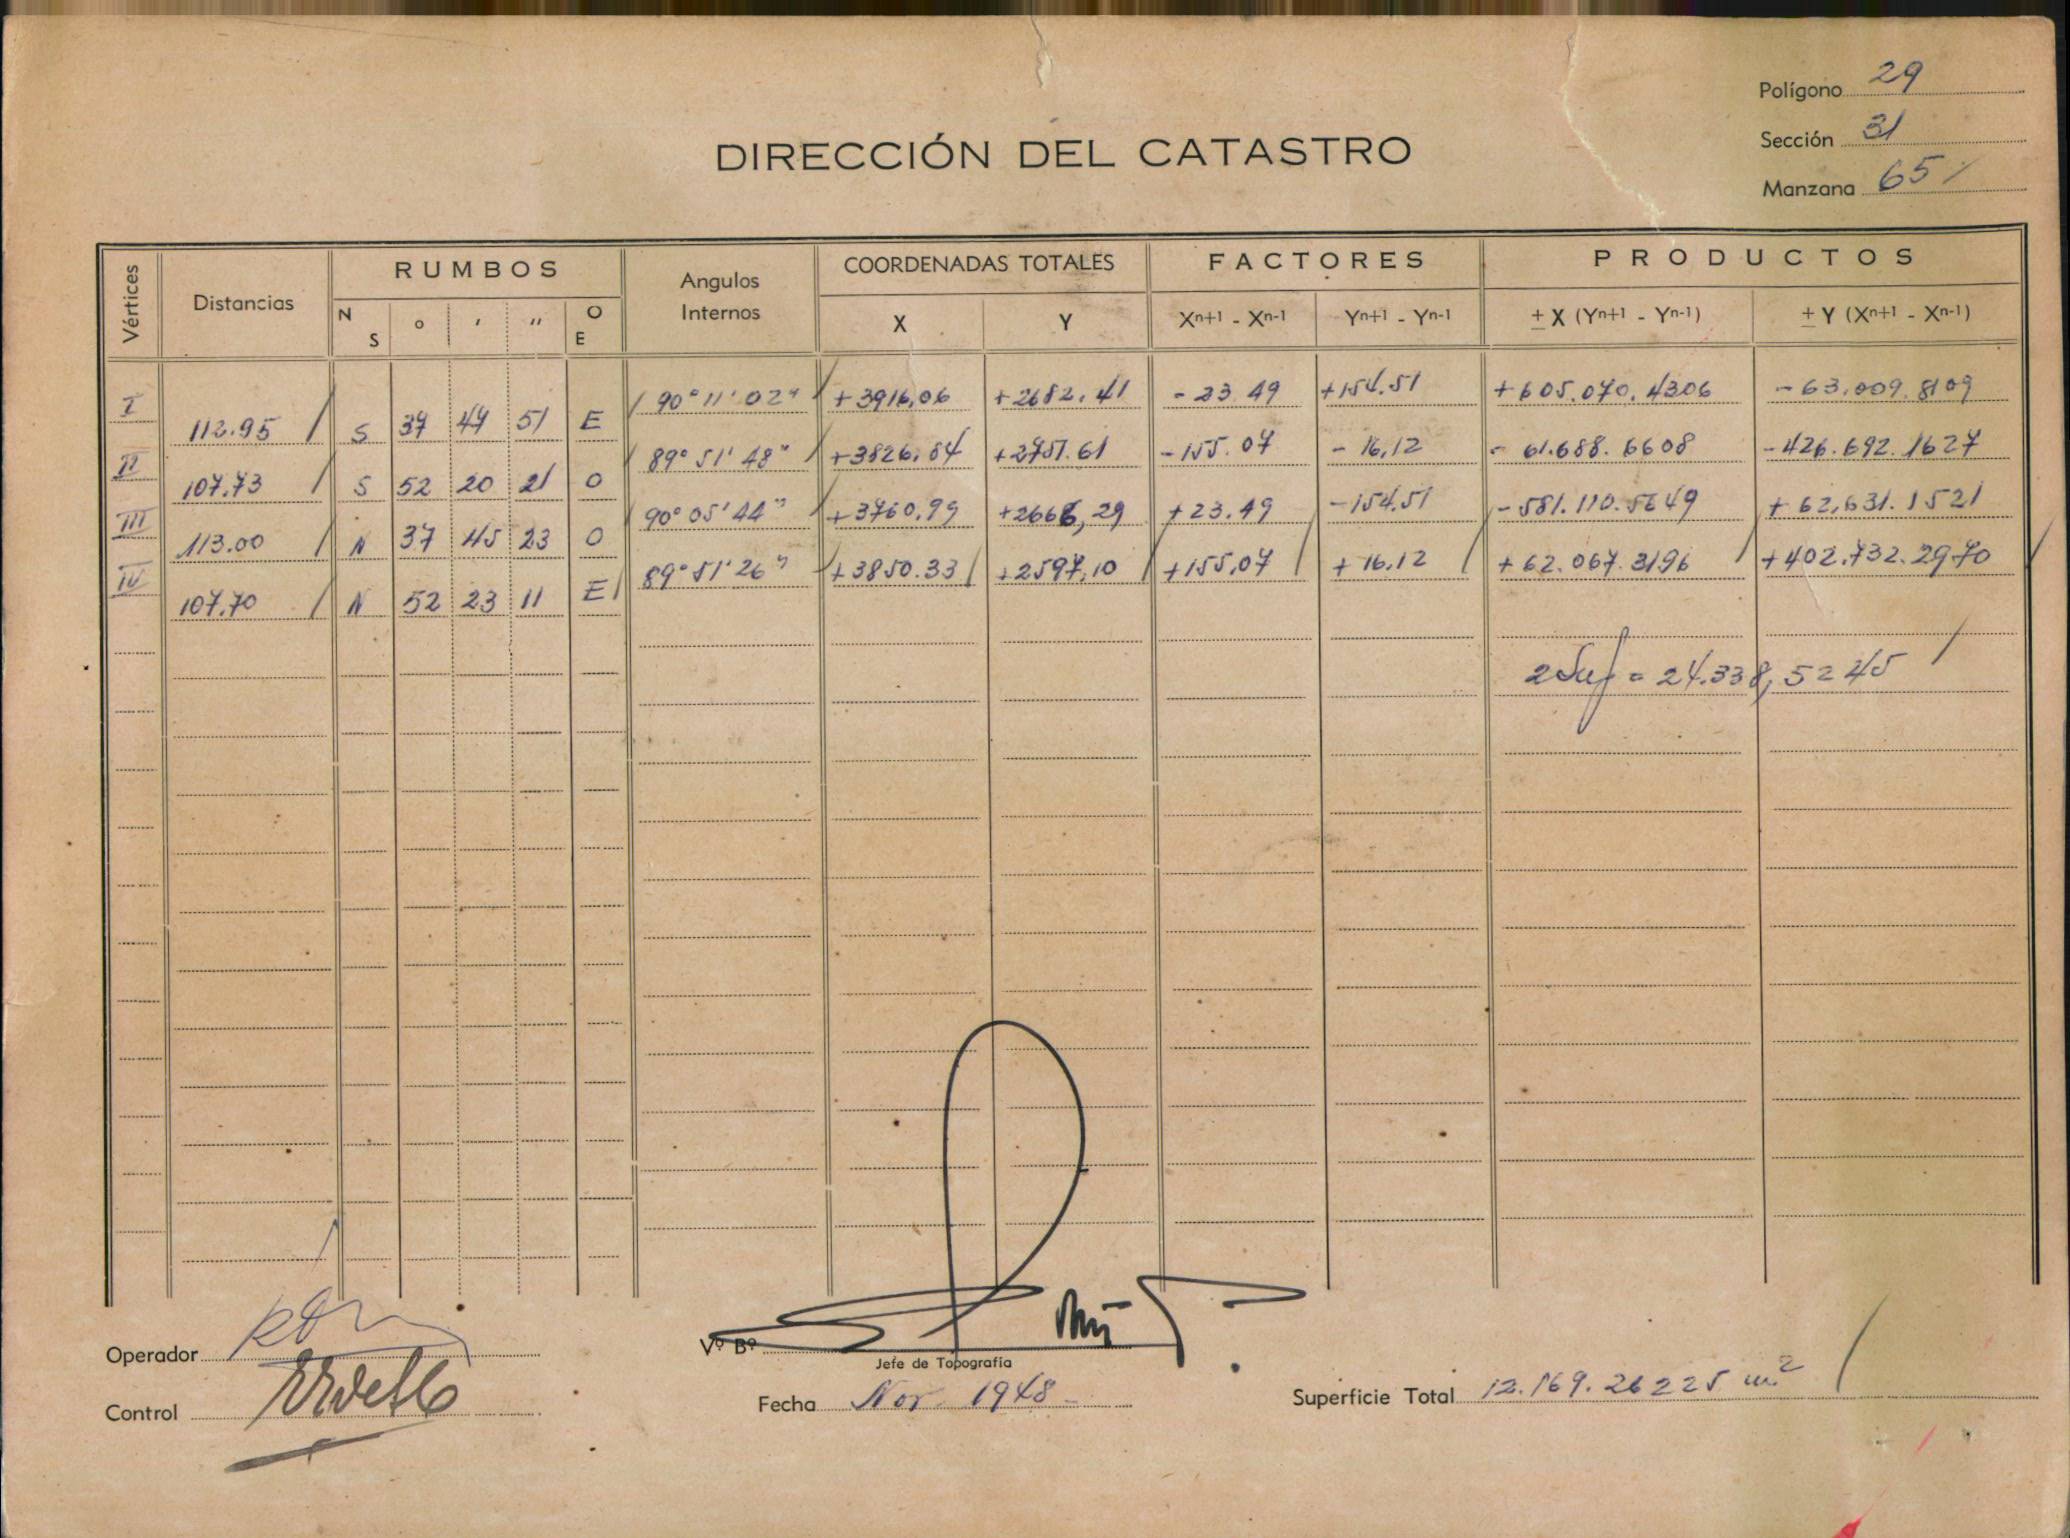 Polígono 29
Sección 31
Manzana 65
DIRECCIÓN DEL CATASTRO
Vértices Distancias RUMBOS Angulos Internos COORDENADAS TOTALES FACTORES PRODUCTOS
N S ° ' " O E X Y Xⁿ⁺¹ - Xⁿ⁻¹ Yⁿ⁺¹ - Yⁿ⁻¹ ± X (Yⁿ⁺¹ - Yⁿ⁻¹) ± Y (Xⁿ⁺¹ - Xⁿ⁻¹)
I 90° 11' 02" +3916,06 +2682.41 -23.49 +154.51 +605.070.4306 -63.009.8109
112.95 S 37 47 51 E
II 89° 51' 48" +3826,84 +2751.61 -155.07 -16,12 -61.688.6608 -426.692.1627
107.73 S 52 20 21 O
III 90° 05' 44" +3760,99 +2666,29 +23.49 -154.51 -581.110.5649 +62,631.1521
113.00 N 37 45 23 O
IV 89° 51' 26" +3850.33 +2597,10 +155,07 +16,12 +62.067.3196 +402.732.2970
107.70 N 52 23 11 E
2Suf = 24.338,5245
Operador
Control
Vº Bº
Jefe de Topografía
Fecha Nov. 1948
Superficie Total 12.169.26225 m²